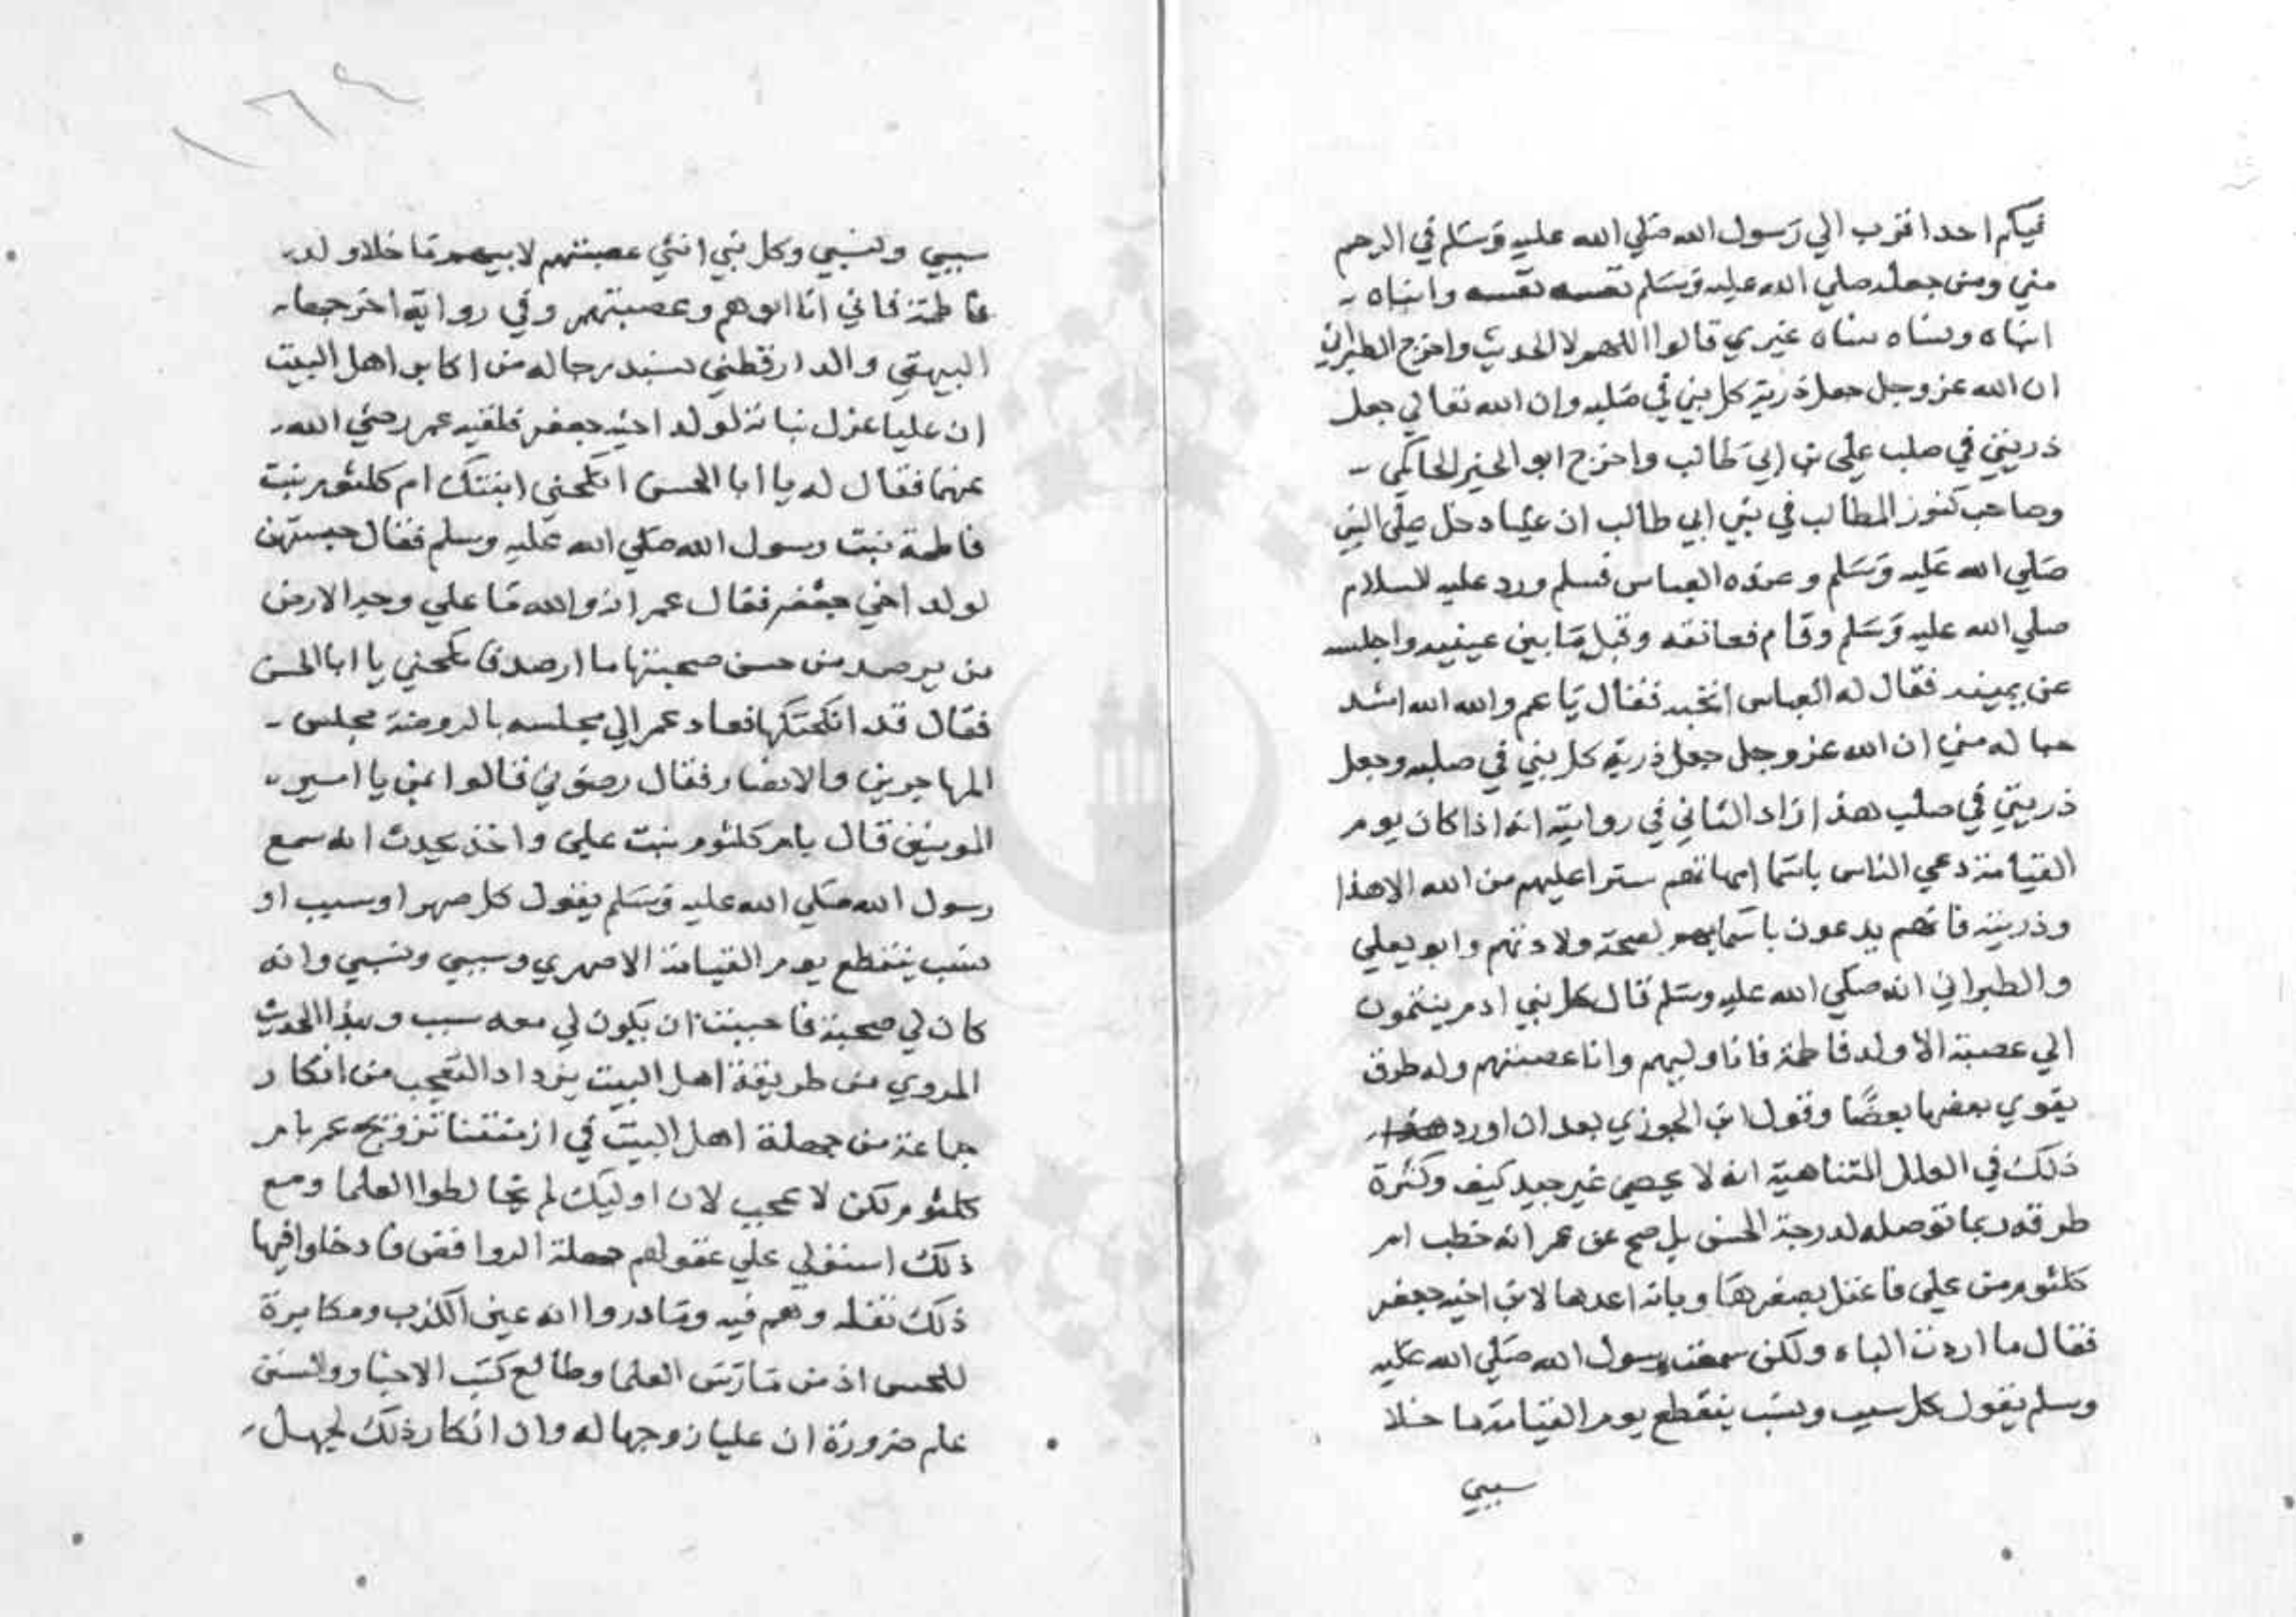 فيكم احد اقرب الي رسول الله صلي الله عليه وسلم في الرحم
مني ومن جعله صلي الله عليه وسلم نفسه نفسه وابناه
ابناه ونساه نساه غيري قالوا اللهم لا الحديث واخرج الطبراني
ان الله عز وجل جعل ذرية كل نبي في صلبه وان الله تعالي جعل
ذريتي في صلب علي بن ابي طالب واخرج ابو الخير الحاكمي
وصاحب كنوز المطالب في بني ابي طالب ان عليا دخل علي النبي
صلي الله عليه وسلم وعنده العباس فسلم ورد عليه السلام
صلي الله عليه وسلم وقام فعانقه وقبل ما بين عينيه واجلسه
عن يمينه فقال له العباس اتحبه فقال يا عم والله الله اشد
حبا له مني ان الله عز وجل جعل ذرية كل نبي في صلبه وجعل
ذريتي في صلب هذا زاد الثاني في روايته انه اذا كان يوم
القيامة دعي الناس باسما امهاتهم سترا عليهم من الله الا هذا
وذريته فانهم يدعون باسمايهم لصحة ولادتهم وابو يعلي
والطبراني انه صلي الله عليه وسلم قال كل بني ادم ينتمون
الي عصبة الا ولد فاطمة فانا وليهم وانا عصبتهم وله طرق
يقوي بعضها بعضا وقول ابن الجوزي بعد ان اورد
ذلك في العلل المتناهية انه لا يصح غير جيد كيف وكثرة
طرقه ربما توصله لدرجة الحسن بل صح عن عمر انه خطب ام
كلثوم من علي فاعتل بصغرها وبانه اعدها لابن اخيه جعفر
فقال ما اردت الباه ولكن سمعت رسول الله صلي الله عليه
وسلم يقول كل سبب ونسب ينقطع يوم القيامة ما خلا
سببي
سببي ونسبي وكل بني انثي عصبتهم لابيهم ما خلا ولد
فاطمة فاني انا ابوهم وعصبتهم وفي رواية اخرجها
البيهقي والدارقطني بسند رجاله من اكابر اهل البيت
ان عليا عزل بناته لولد اخيه جعفر فلقيه عمر رضي الله
عنهما فقال له يا ابا الحسن انكحني ابنتك ام كلثوم بنت
فاطمة بنت رسول الله صلي الله عليه وسلم فقال حبستهن
لولد اخي جعفر فقال عمر انه والله ما علي وجه الارض
من يرصد من حسن صحبتها ما ارصد فانكحني يا ابا الحسن
فقال قد انكحتكها فعاد عمر الي مجلسه بالروضة مجلس
المهاجرين والانصار فقال رفئوني قالوا بمن يا امير
المومنين قال بام كلثوم بنت علي واخذ يحدث انه سمع
رسول الله صلي الله عليه وسلم يقول كل صهر او سبب او
نسب ينقطع يوم القيامة الا صهري وسببي ونسبي وانه
كان لي صحبة فاحببت ان يكون لي معه سبب وبهذا الحديث
المروي من طريقة اهل البيت يزداد التعجب من انكار
جماعة من جهلة اهل البيت في ازمنتنا تزويج عمر بام
كلثوم لكن لا عجب لان اوليك لم يخالطوا العلما ومع
ذلك استولي علي عقولهم جهلة الروافض فادخلوا فيها
ذلك وهم فيه وما دروا انه عين الكذب ومكابرة
للحس اذ من مارس العلما وطالع كتب الاخبار والسنن
علم ضرورة ان عليا زوجها له وان انكار ذلك لجهل